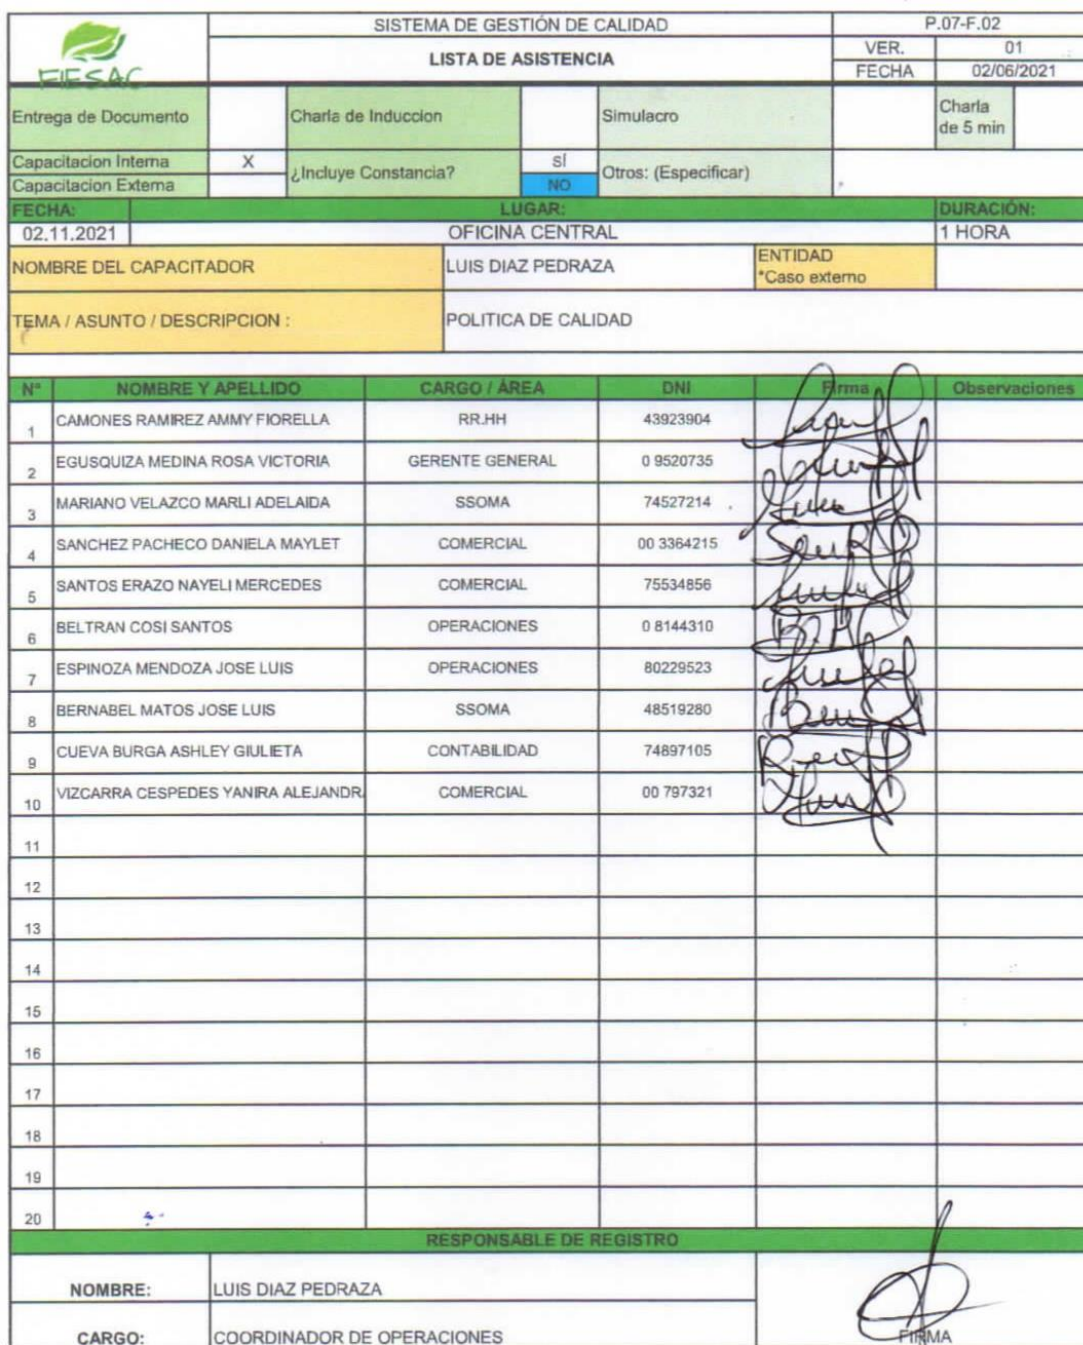 FIESAC
SISTEMA DE GESTIÓN DE CALIDAD
P.07-F.02
LISTA DE ASISTENCIA
VER. 01
FECHA 02/06/2021
Entrega de Documento
Charla de Induccion
Simulacro
Charla
de 5 min
Capacitacion Interna X
¿Incluye Constancia?
SÍ
Otros: (Especificar)
Capacitacion Externa
NO
FECHA: LUGAR: DURACIÓN:
02.11.2021 OFICINA CENTRAL 1 HORA
NOMBRE DEL CAPACITADOR LUIS DIAZ PEDRAZA
ENTIDAD
*Caso externo
TEMA / ASUNTO / DESCRIPCION : POLITICA DE CALIDAD
N° NOMBRE Y APELLIDO CARGO / ÁREA DNI Firma Observaciones
1 CAMONES RAMIREZ AMMY FIORELLA RR.HH 43923904
2 EGUSQUIZA MEDINA ROSA VICTORIA GERENTE GENERAL 0 9520735
3 MARIANO VELAZCO MARLI ADELAIDA SSOMA 74527214
4 SANCHEZ PACHECO DANIELA MAYLET COMERCIAL 00 3364215
5 SANTOS ERAZO NAYELI MERCEDES COMERCIAL 75534856
6 BELTRAN COSI SANTOS OPERACIONES 0 8144310
7 ESPINOZA MENDOZA JOSE LUIS OPERACIONES 80229523
8 BERNABEL MATOS JOSE LUIS SSOMA 48519280
9 CUEVA BURGA ASHLEY GIULIETA CONTABILIDAD 74897105
10 VIZCARRA CESPEDES YANIRA ALEJANDRA COMERCIAL 00 797321
11
12
13
14
15
16
17
18
19
20
RESPONSABLE DE REGISTRO
NOMBRE: LUIS DIAZ PEDRAZA
CARGO: COORDINADOR DE OPERACIONES
FIRMA